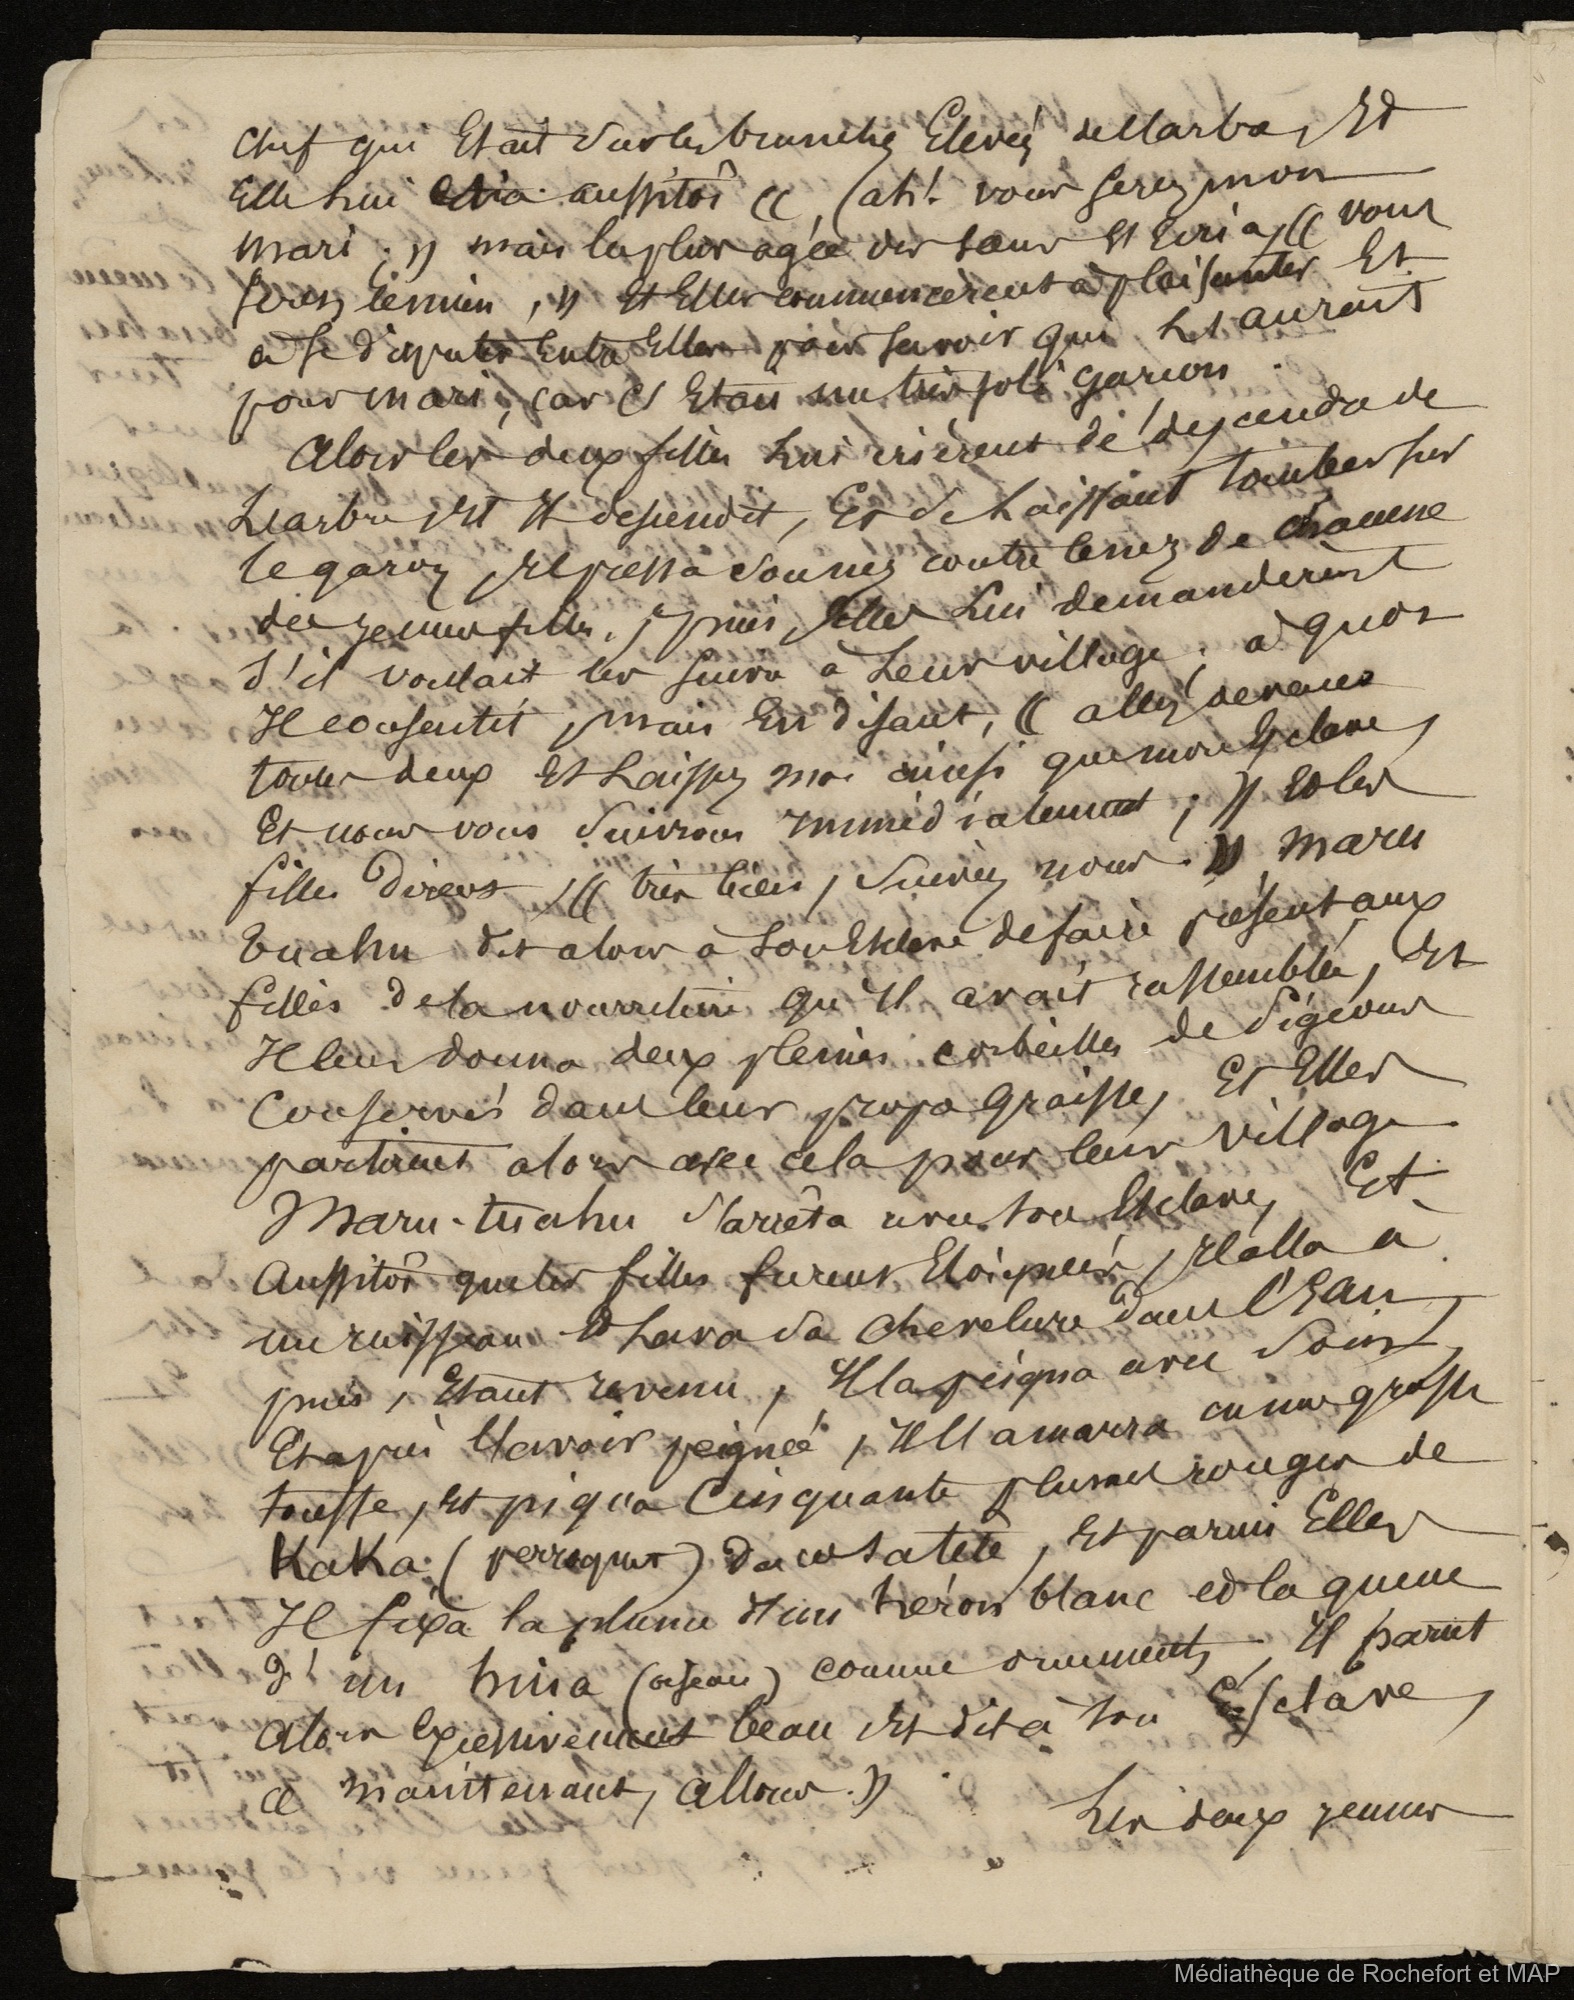 chef qui Etait Sur les branches Elevées de l'arbre, Et
Elle lui cria aussitôt (( (ah! vous serez mon
mari ; )) mais la plus agée des sœurs s'Ecria, (( vous
serez le mien, )) et Elles commencèrent à plaisanter Et
à se disputer Entre Elles pour savoir qui L'aurait
pour mari, car c'Etait un très joli garçon.
Alors les deux filles Lui crièrent dé descendre de
L'arbre, et Il descendit, Et se Laissant tomber sur
le gazon, Il pressa son nez contre le nez de chacune
des jeunes filles, puis, Elles Lui demandèrent
s'il voulait les suivre à Leur village, à quoi
Il consentit, mais En disant, (( allez devant
toutes deux Et Laissez moi ainsi que mon Esclave,
Et nous vous Suivrons Immédiatement ; )) Et les
filles dirent, (( très bien, Suivez nous. )) Maru
tuahu dit alors à son Esclave de faire présent aux
filles de la nourriture qu'Il avait rassemblée, Et
Il leur donna deux pleines corbeilles de Pigeons
Conservés dans leur propre graisse, Et Elles
partirent alors avec cela pour leur village
Maru-tuahu S'arrêta avec son Esclave, Et
Aussitôt que les filles furent Eloignées, Il alla à
un ruisseau Et Lava Sa Chevelure dans l'Eau,
puis, Etant revenu, Il la peigna avec Soin,
Et après l'avoir peignée, Il l'amarra en une grosse
touffe, Et piqua Cinquante plumes rouges de
KaKa (perroquet) dans sa tête, Et parmi Elles
Il fixa la plume d'un héron blanc et la queue
d'un huia (oiseau) comme ornements, Il parut
Alors Excessivement beau Et dit à son Esclave,
(( maintenant, allons. ))
Les deux jeunes
Médiathèque de Rochefort et MAP